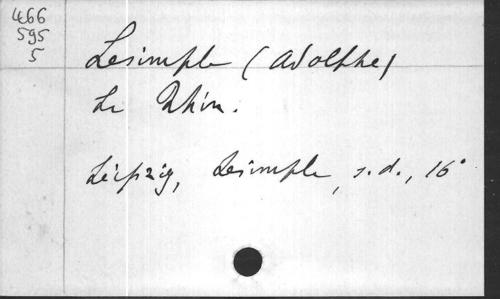 466
595
5
Lesimple (Adolphe)
Le Rhin.
Leipzig, Lesimple, s.d., 16°